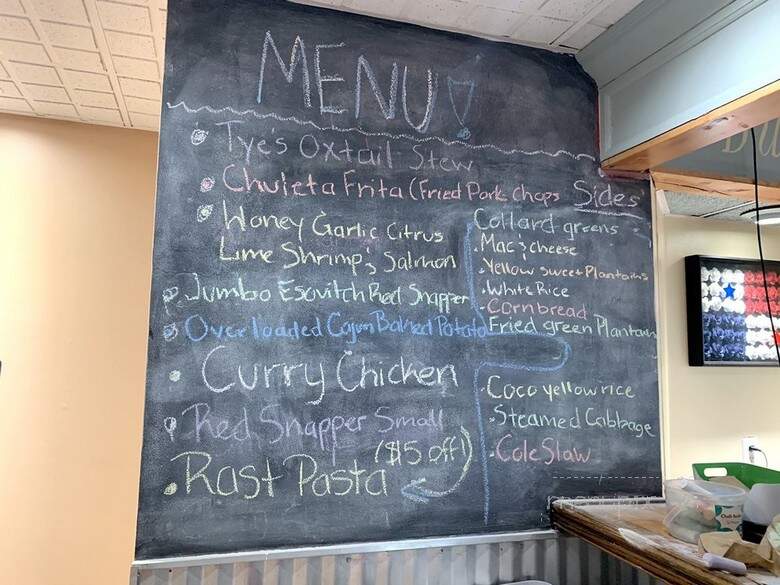 MENU!
Tye's Oxtail Stew
Chuleta Frita (Fried Pork Chops
Honey Garlic Citrus
Lime Shrimp & Salmon
Jumbo Esovitch Red Snapper
Overloaded Cajun Baked Potato
Curry Chicken
Red Snapper Small
($15 off)
Rast Pasta
Sides
Collard greens
Mac & cheese
Yellow sweet Plantains
White Rice
Cornbread
Fried green Plantain
Coco yellow rice
Steamed Cabbage
Cole Slaw